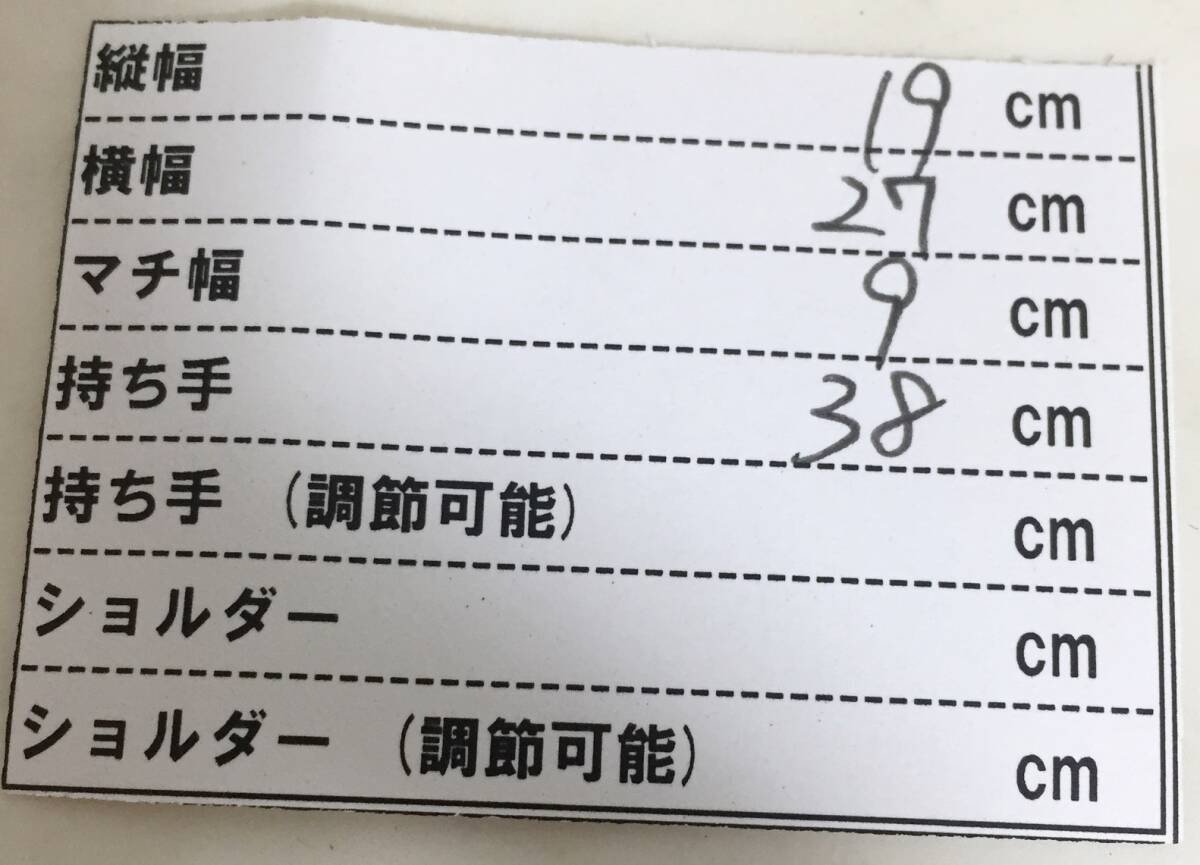 縦幅 19 cm
横幅 27 cm
マチ幅 9 cm
持ち手 38 cm
持ち手 (調節可能) cm
ショルダー cm
ショルダー (調節可能) cm